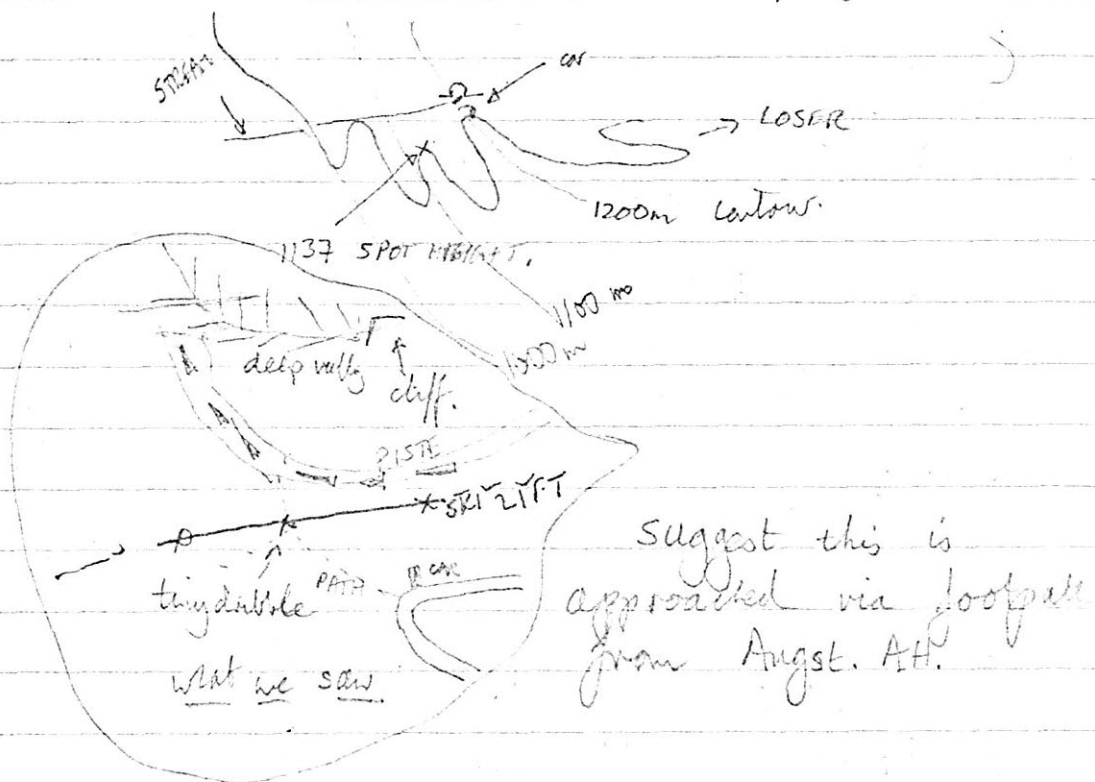 STREAM
car
LOSER
1200m contour.
1137 SPOT HEIGHT.
1100 m
1000m
deep valley
cliff.
PISTE
SKI LIFT
tiny dribble
PATH
CAR
what we saw
Suggest this is
approached via footpath
from Augst. AH.